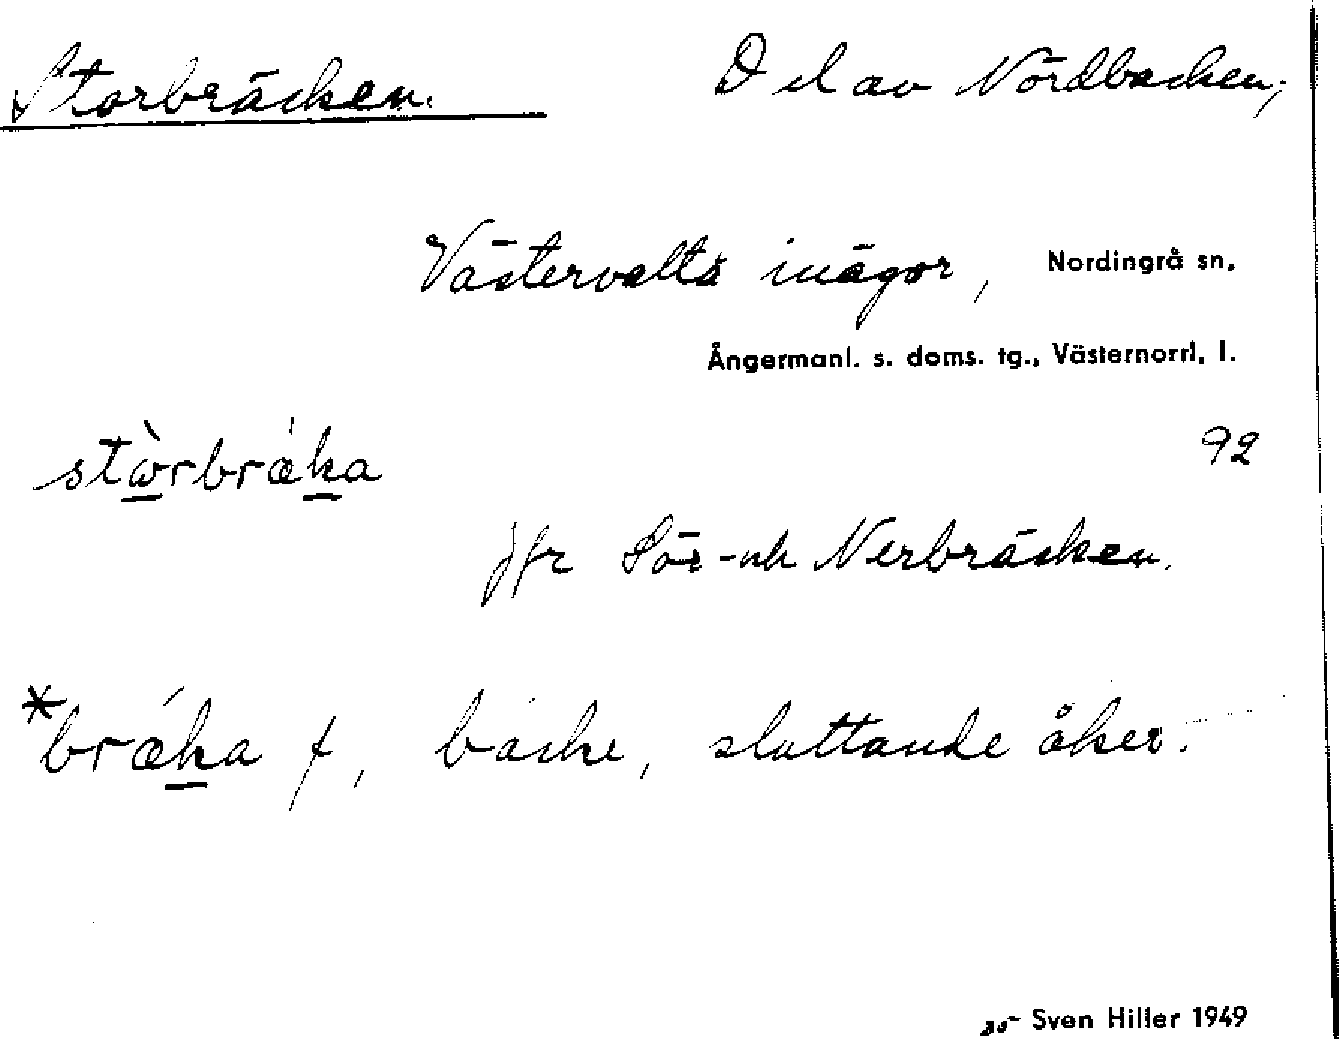 Storbräcken. Del av Nördbacken,
Västervalls inägor, Nordingrå sn.
Ångermanl. s. doms. tg., Västernorrl. l.
stòrbræka 92
jfr Sör- och Nerbräcken.
*bræka f, backe, sluttande åker.
Sven Hiller 1949